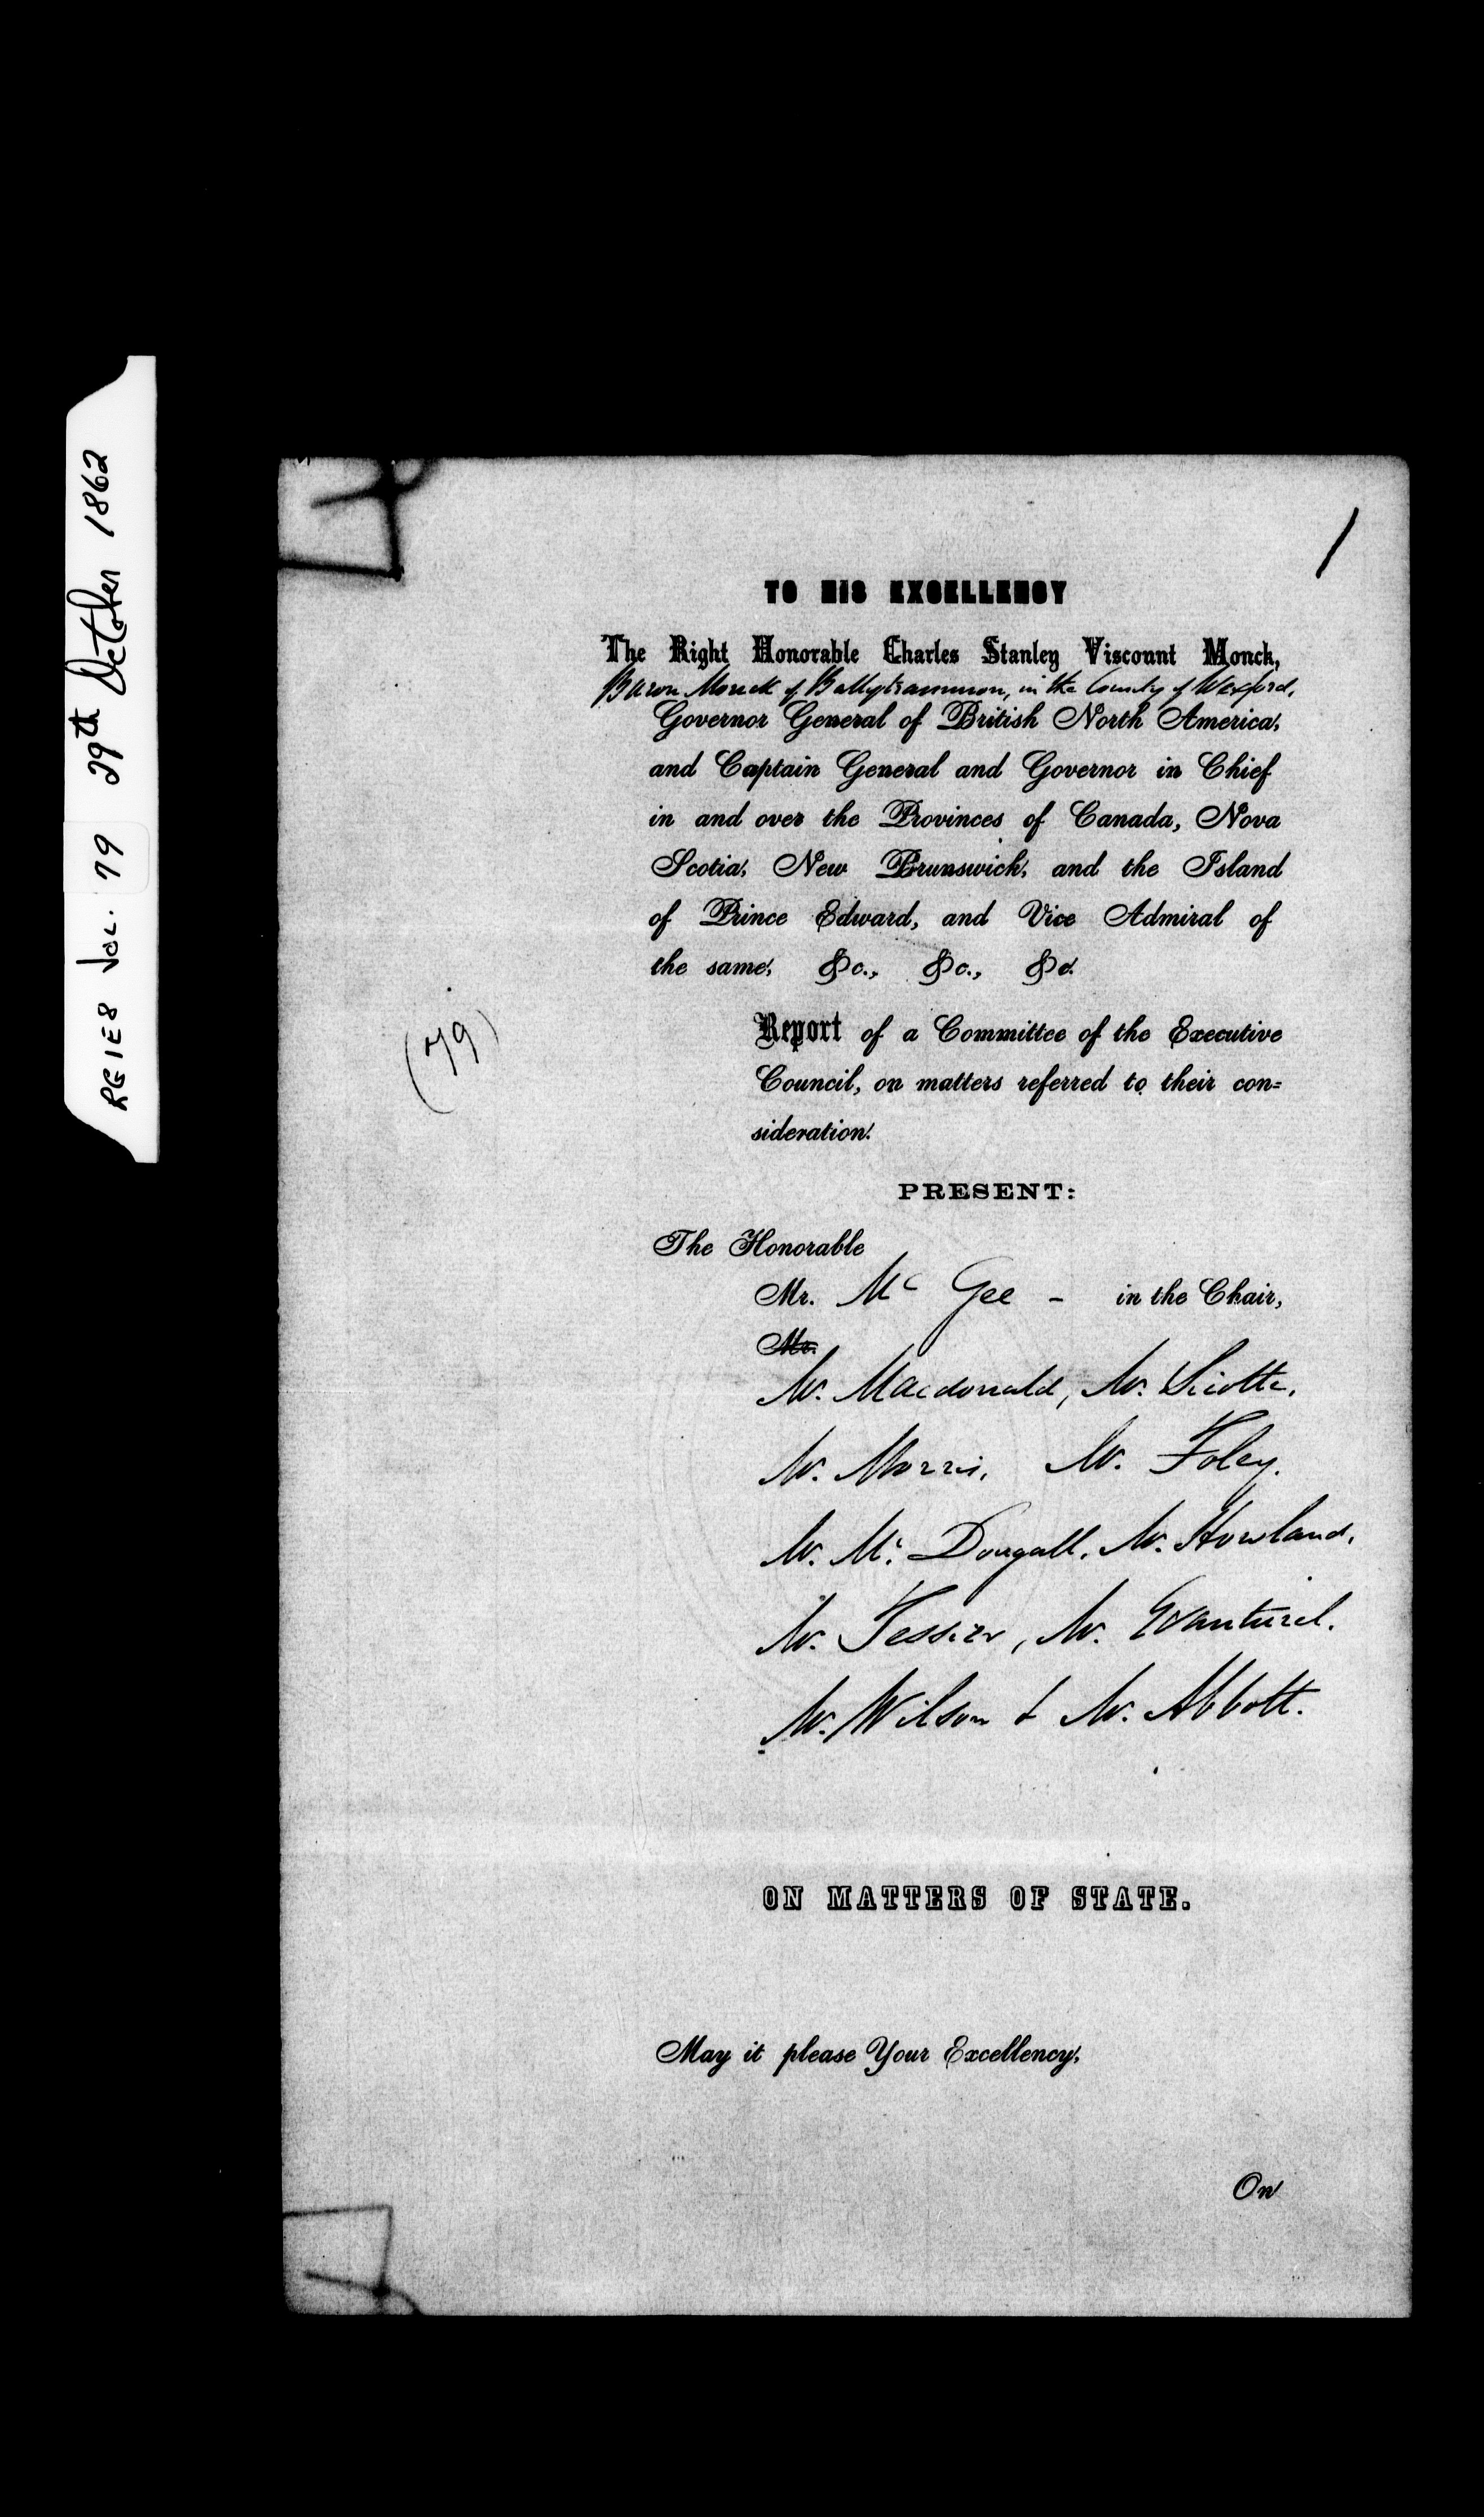 RG1E8 Vol. 79 29th October 1862
1
TO HIS EXCELLENCY
The Right Honorable Charles Stanley Viscount Monck,
Baron Monck of Ballytrammon, in the County of Wexford,
Governor General of British North America,
and Captain General and Governor in Chief
in and over the Provinces of Canada, Nova
Scotia, New Brunswick, and the Island
of Prince Edward, and Vice Admiral of
the same, &c., &c., &c.
(79)
Report of a Committee of the Executive
Council, on matters referred to their con=
sideration.
PRESENT:
The Honorable
Mr. Mc Gee - in the Chair,
Mr.
Mr. Macdonald, Mr. Sicotte,
Mr. Morris, Mr. Foley.
Mr. Mc Dougall, Mr. Howland,
Mr. Tessier, Mr. Evanturel.
Mr. Wilson & Mr. Abbott.
ON MATTERS OF STATE.
May it please Your Excellency,
On